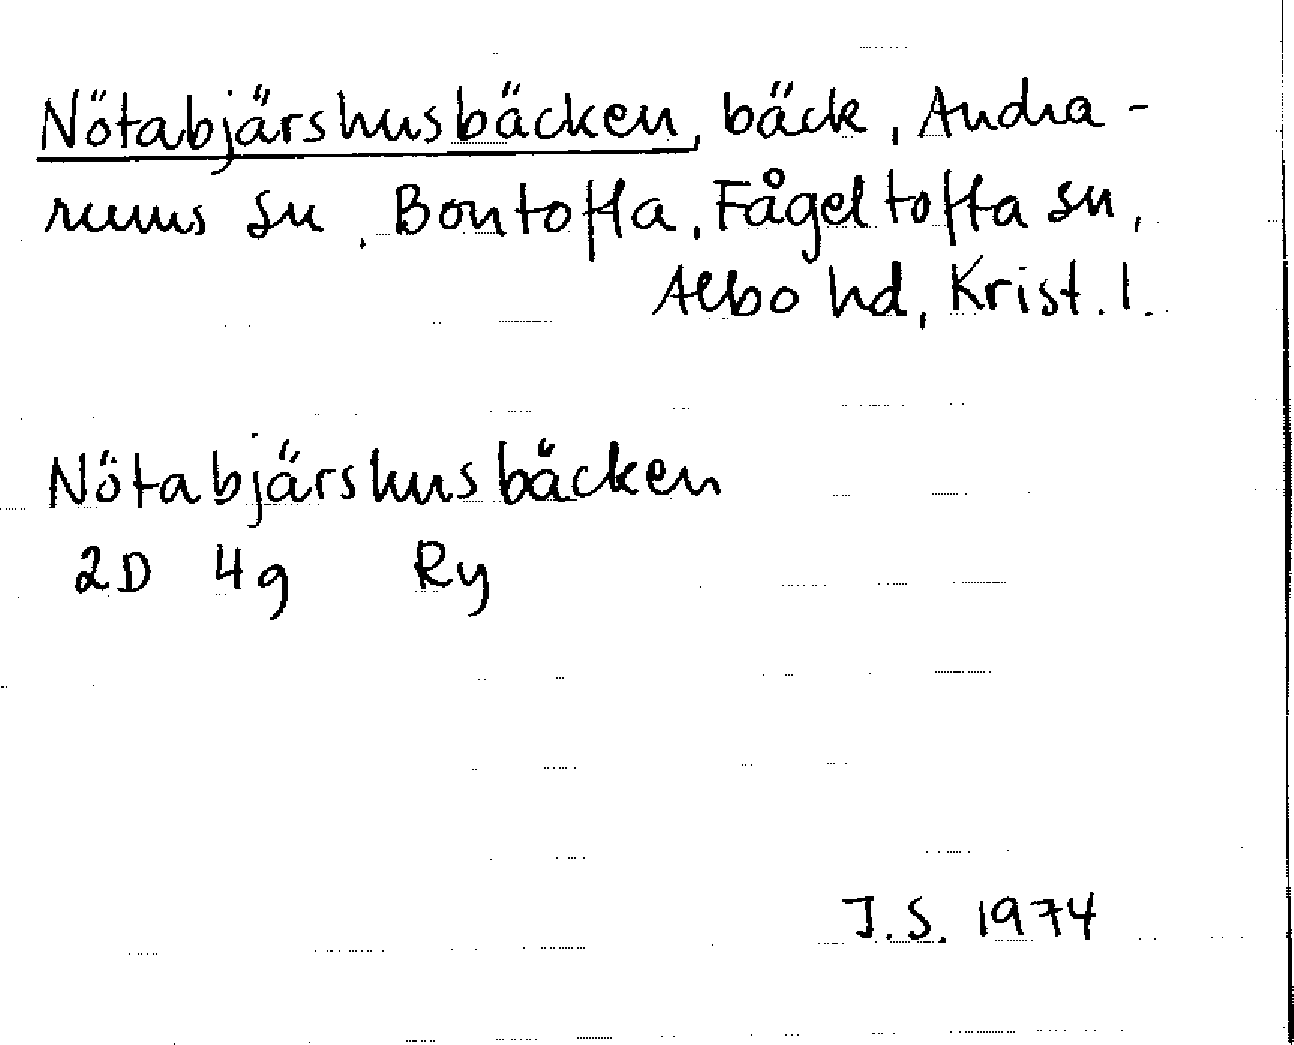 Nötabjärshusbäcken, bäck, Andra-
rums sn, Bontofta, Fågeltofta sn,
Albo hd, Krist. l.
Nötabjärshusbäcken
2D 4g Ry
J.S. 1974